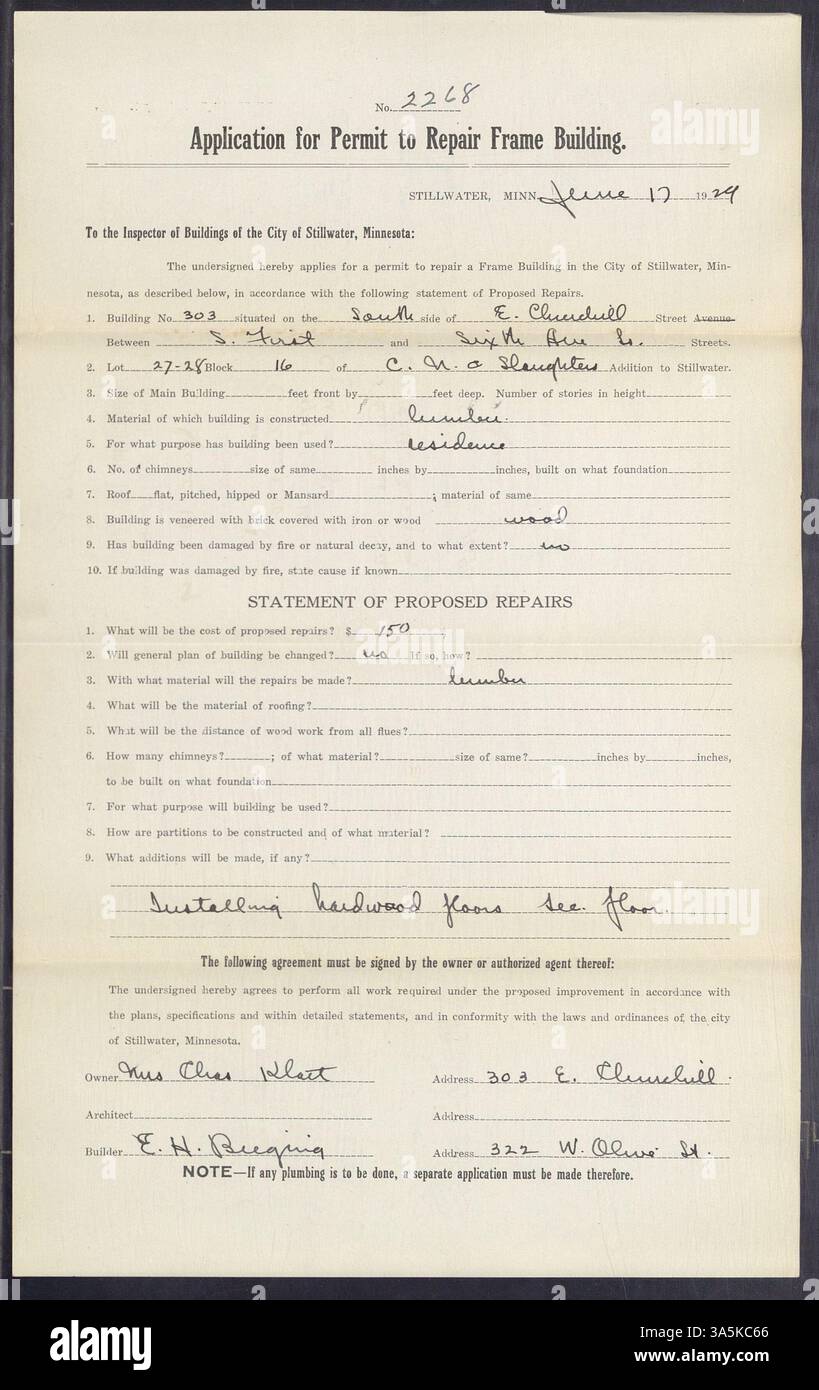 No. 2268
Application for Permit to Repair Frame Building.
STILLWATER, MINN. June 17 1929
To the Inspector of Buildings of the City of Stillwater, Minnesota:
The undersigned hereby applies for a permit to repair a Frame Building in the City of Stillwater, Min-
nesota, as described below, in accordance with the following statement of Proposed Repairs.
1. Building No. 303 situated on the South side of E. Churchill Street Avenue
Between S. First and Sixth Ave So. Streets.
2. Lot 27-28 Block 16 of C. N. & Slaughters Addition to Stillwater.
3. Size of Main Building feet front by feet deep. Number of stories in height
4. Material of which building is constructed lumber.
5. For what purpose has building been used? residence
6. No. of chimneys size of same inches by inches, built on what foundation
7. Roof flat, pitched, hipped or Mansard ; material of same
8. Building is veneered with brick covered with iron or wood wood
9. Has building been damaged by fire or natural decay, and to what extent? no
10. If building was damaged by fire, state cause if known
STATEMENT OF PROPOSED REPAIRS
1. What will be the cost of proposed repairs? $ 150
2. Will general plan of building be changed? no If so, how?
3. With what material will the repairs be made? lumber
4. What will be the material of roofing?
5. What will be the distance of wood work from all flues?
6. How many chimneys? ; of what material? size of same? inches by inches,
to be built on what foundation
7. For what purpose will building be used?
8. How are partitions to be constructed and of what material?
9. What additions will be made, if any?
Installing hardwood floors sec. floor.
The following agreement must be signed by the owner or authorized agent thereof:
The undersigned hereby agrees to perform all work required under the proposed improvement in accordance with
the plans, specifications and within detailed statements, and in conformity with the laws and ordinances of the city
of Stillwater, Minnesota.
Owner Mrs Chas Klatt Address 303 E. Churchill.
Architect Address
Builder E. H. Bieging Address 322 W. Olive St.
NOTE—If any plumbing is to be done, a separate application must be made therefore.
alamy
Image ID: 3A5KC66
www.alamy.com